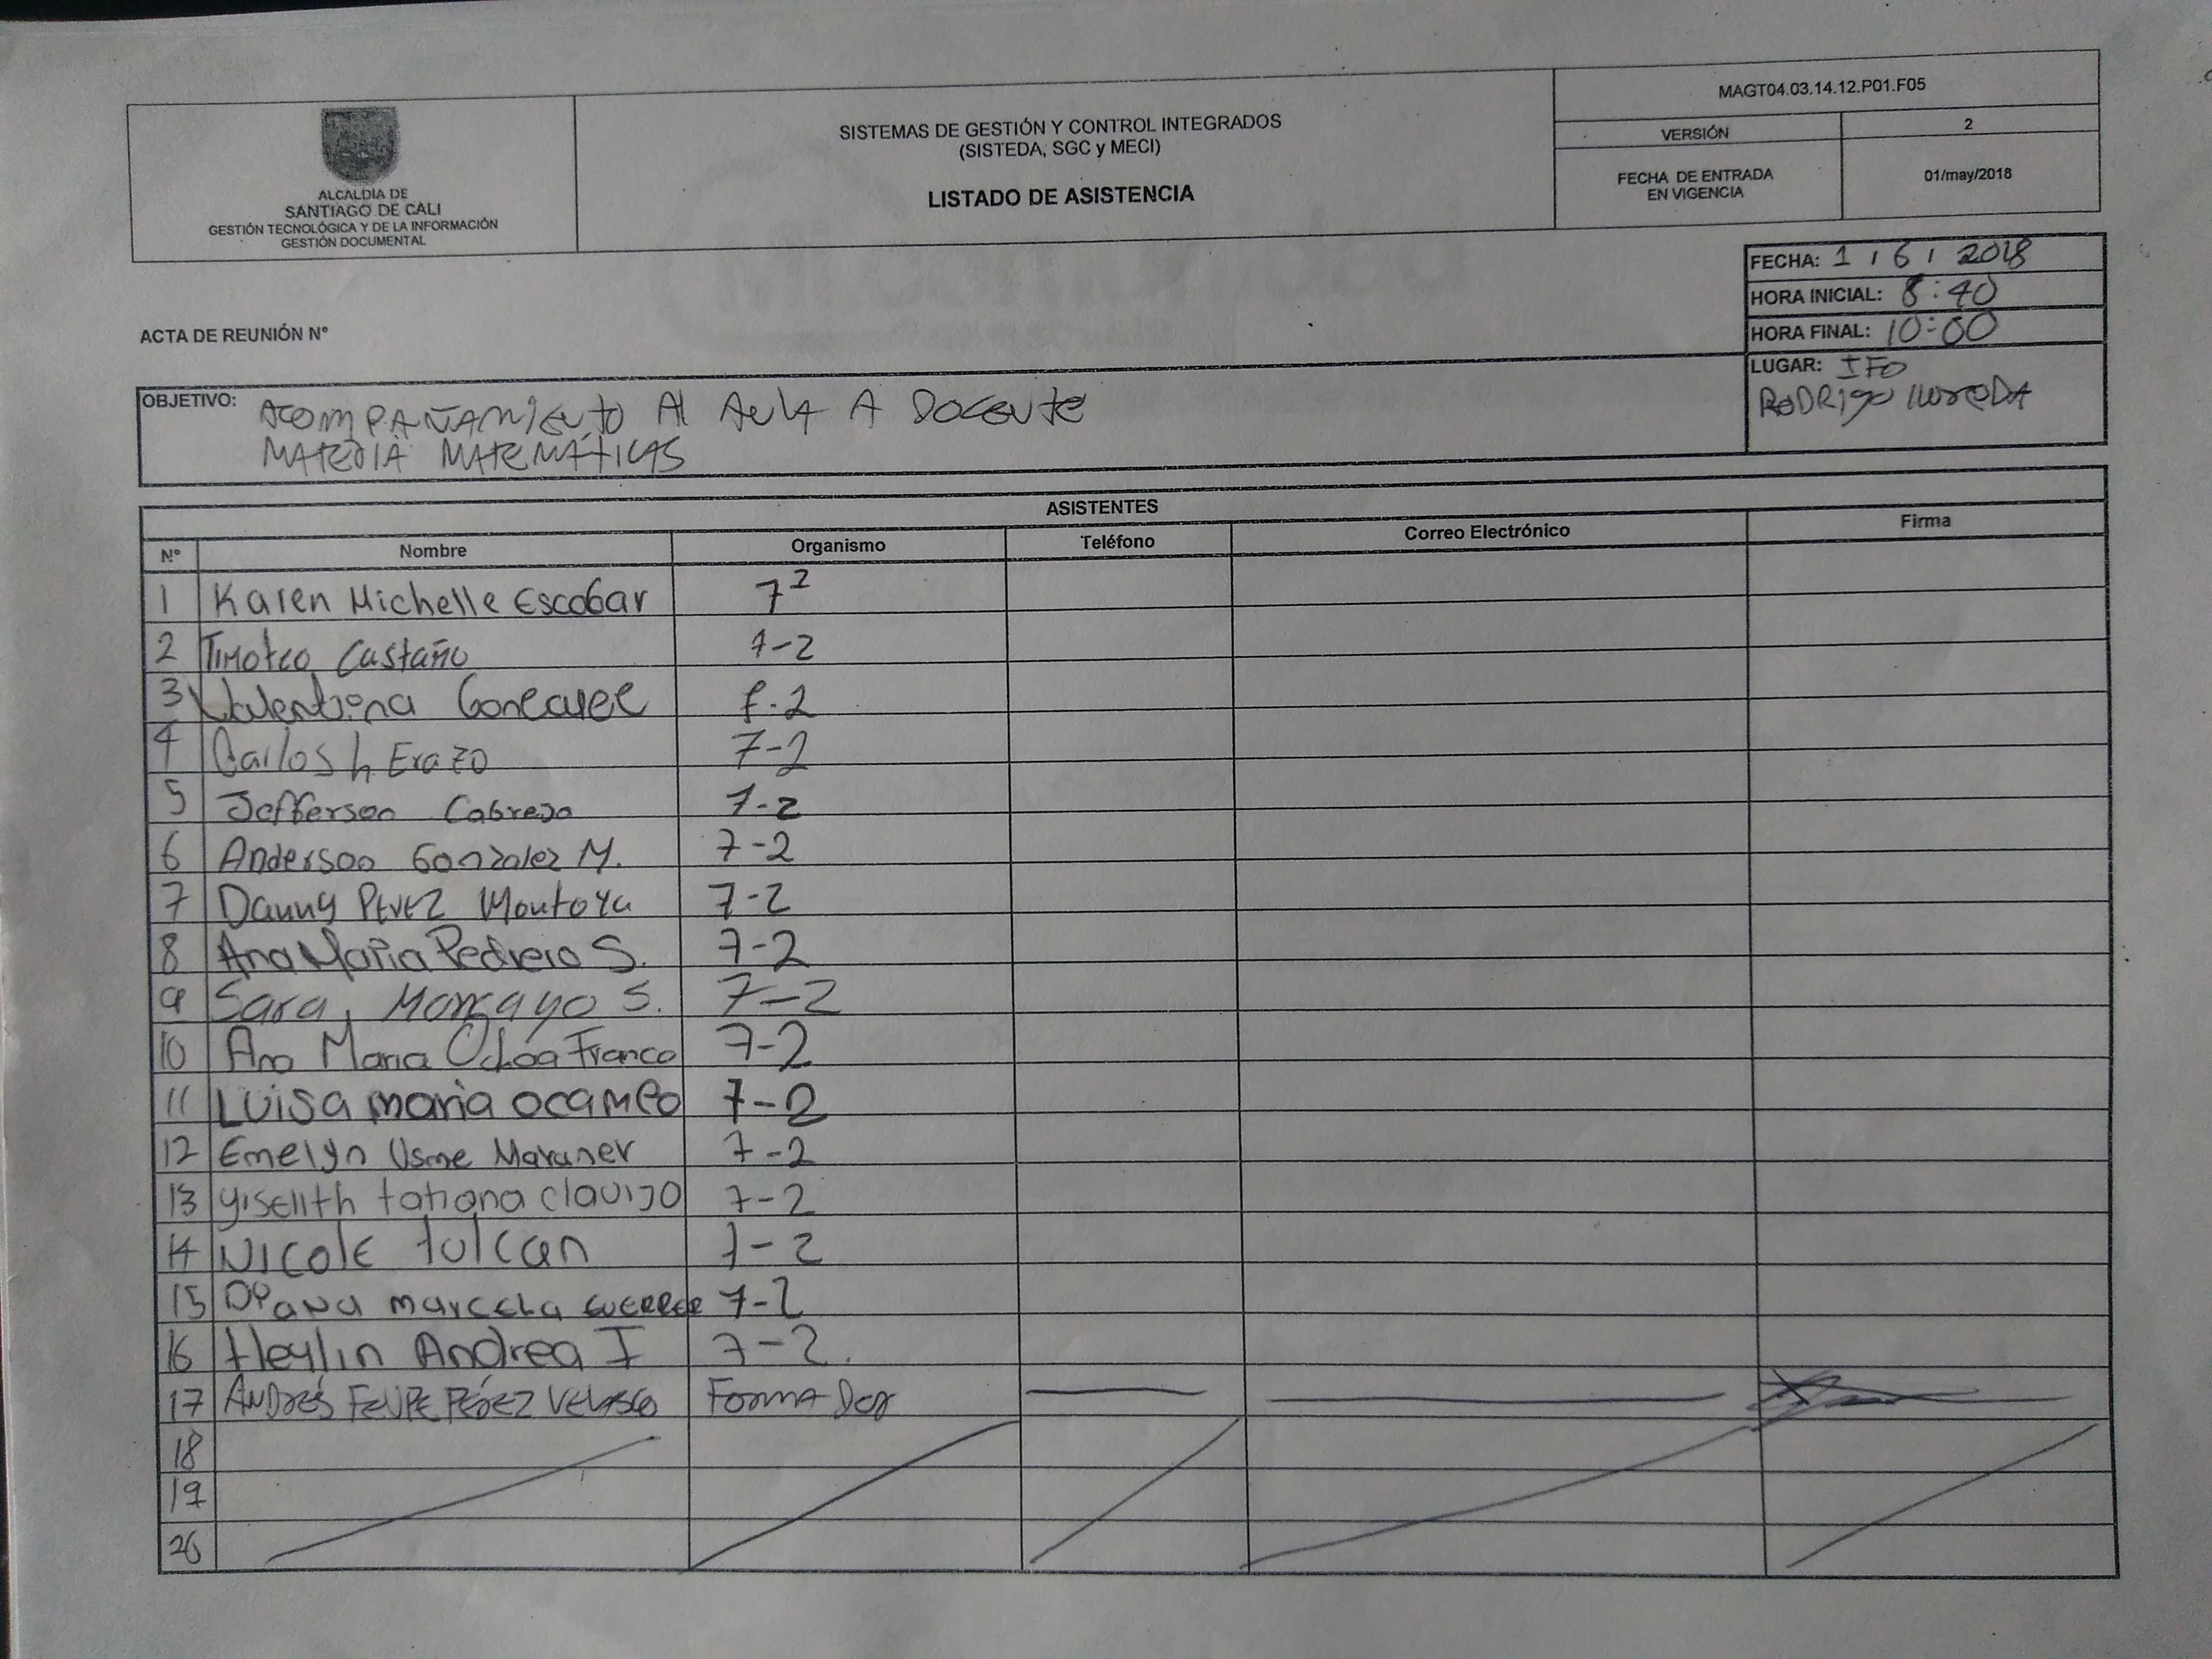 ALCALDÍA DE
SANTIAGO DE CALI
GESTIÓN TECNOLÓGICA Y DE LA INFORMACIÓN
GESTIÓN DOCUMENTAL
SISTEMAS DE GESTIÓN Y CONTROL INTEGRADOS
(SISTEDA, SGC y MECI)
LISTADO DE ASISTENCIA
MAGT04.03.14.12.P01.F05
VERSIÓN 2
FECHA DE ENTRADA
EN VIGENCIA
01/may/2018
FECHA: 1 / 6 / 2018
HORA INICIAL: 8:40
HORA FINAL: 10:00
ACTA DE REUNIÓN N°
LUGAR: IFO
RODRIGO lloreDA
OBJETIVO: ACOMPAÑAMIENTO Al AulA A DOCENTE
MATERIA MATEMÁTICAS
ASISTENTES
N° Nombre Organismo Teléfono Correo Electrónico Firma
1 Karen Michelle Escobar 7²
2 Timoteo Castaño 7-2
3 Valentina 7-2
4 Carlos h Erazo 7-2
5 Jefferson Cabrera 7-2
6 Anderson Gonzalez M. 7-2
7 Danny Perez Montoya 7-2
8 Ana Maria Pedrero S. 7-2
9 Sara Moncayo S. 7-2
10 Ana Maria Ochoa Franco 7-2
11 Luisa maria ocampo 7-2
12 Emelyn Usme 7-2
13 yiselith tatiana clavijo 7-2
14 Nicole tulcan 7-2
15 Diana marcela 7-2
16 Heylin Andrea I 7-2.
17 ANDRÉS FELIPE PÉREZ VELASCO FormADor
18
19
20